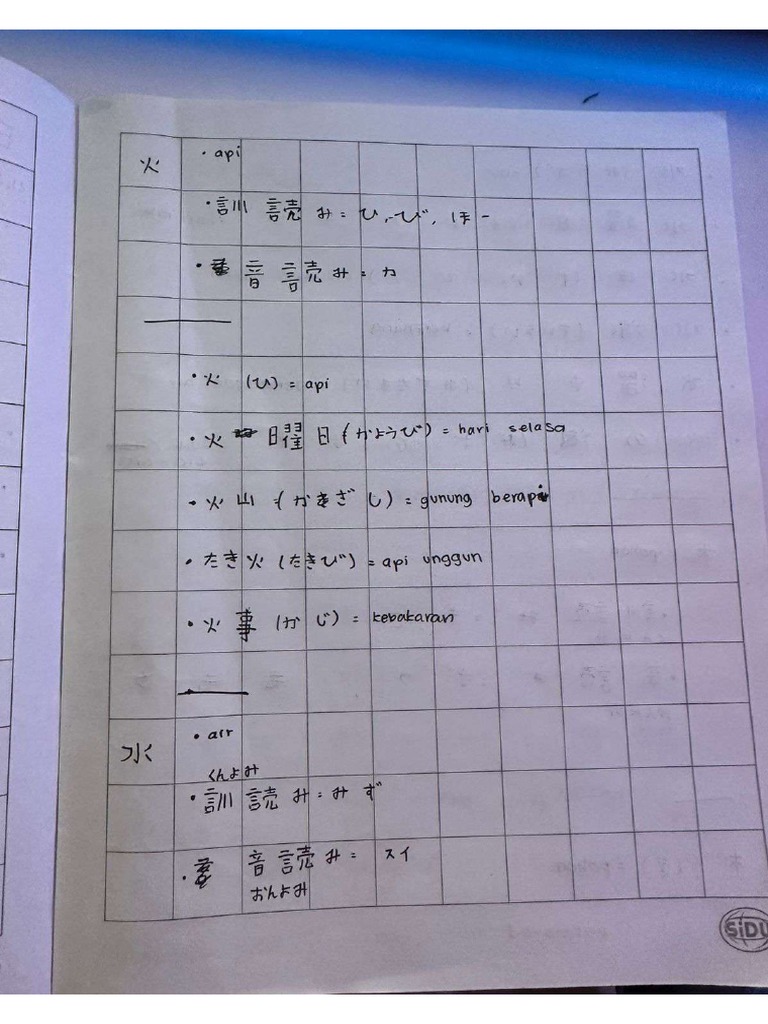 火 • api
• 訓読み = ひ, -び, ほ-
• 音読み = カ
• 火 (ひ) = api
• 火曜日 (かようび) = hari selasa
• 火山 (かざし) = gunung berapi
• たき火 (たきび) = api unggun
• 火事 (かじ) = kebakaran
水 • air
くんよみ
• 訓読み = みず
• 音読み = スイ
おんよみ
SiDU